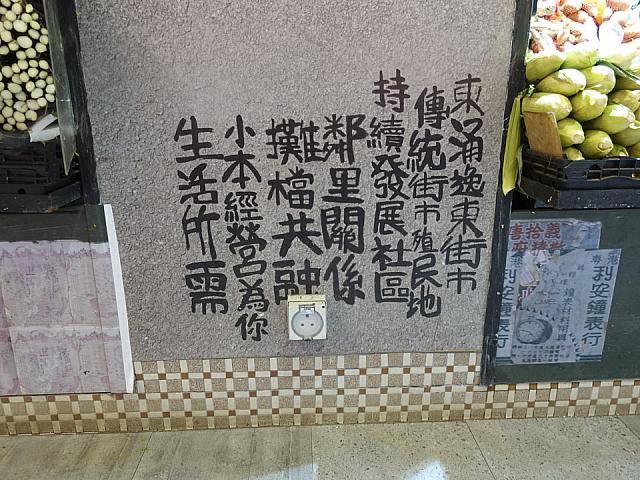 東涌逸東街市
傳統街市殖民地
持續發展社區
鄰里關係
攤檔共融
小本經營為你
生活所需
義拾舊
港
利安鐘表行